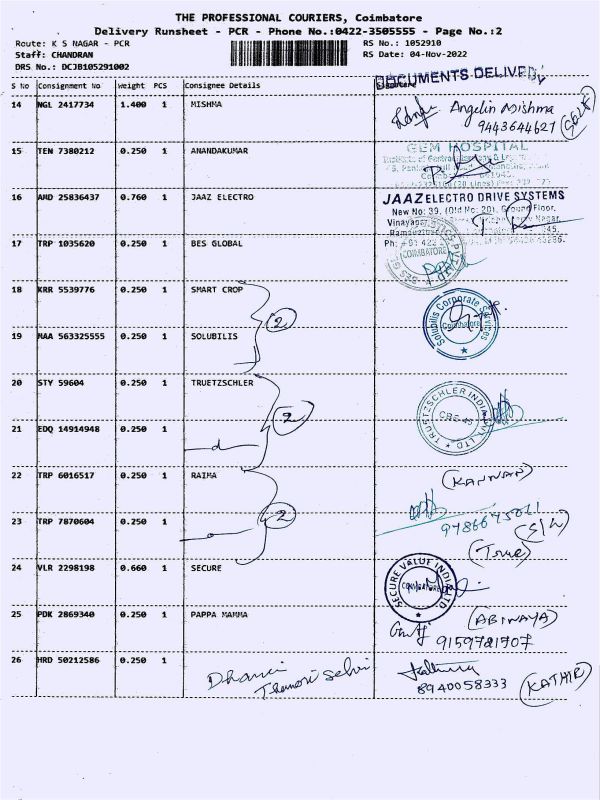 THE PROFESSIONAL COURIERS, Coimbatore
Delivery Runsheet - PCR - Phone No.:0422-3505555 - Page No.:2
Route: K S NAGAR - PCR RS No.: 1052910
Staff: CHANDRAN RS Date: 04-Nov-2022
DRS No.: DCJB105291002
DOCUMENTS DELIVERY
S No Consignment No Weight PCS Consignee Details
14 NGL 2417734 1.400 1 MISHMA Angelin Mishma
9443644627 (SELF)
15 TEN 7380212 0.250 1 ANANDAKUMAR GEM HOSPITAL
16 AMD 25836437 0.760 1 JAAZ ELECTRO JAAZ ELECTRO DRIVE SYSTEMS
New No: 39, (Old No: 20), Ground Floor,
17 TRP 1035620 0.250 1 BES GLOBAL COIMBATORE
18 KRR 5539776 0.250 1 SMART CROP
2 Solubilis Corporate Services
Coimbatore
19 MAA 563325555 0.250 1 SOLUBILIS
20 STY 59604 0.250 1 TRUETZSCHLER
2 TRUETZSCHLER INDIA PVT. LTD
CBE-45
21 EDQ 14914948 0.250 1
22 TRP 6016517 0.250 1 RAIMA (KANNAN)
2
23 TRP 7870604 0.250 1
(True)
24 VLR 2298198 0.660 1 SECURE SECURE VALUE INDIA LTD
COIMBATORE
25 PDK 2869340 0.250 1 PAPPA MAMMA (ABINAYA)
9159781707
26 HRD 50212586 0.250 1 Selvi
8940058333 (KATHIR)